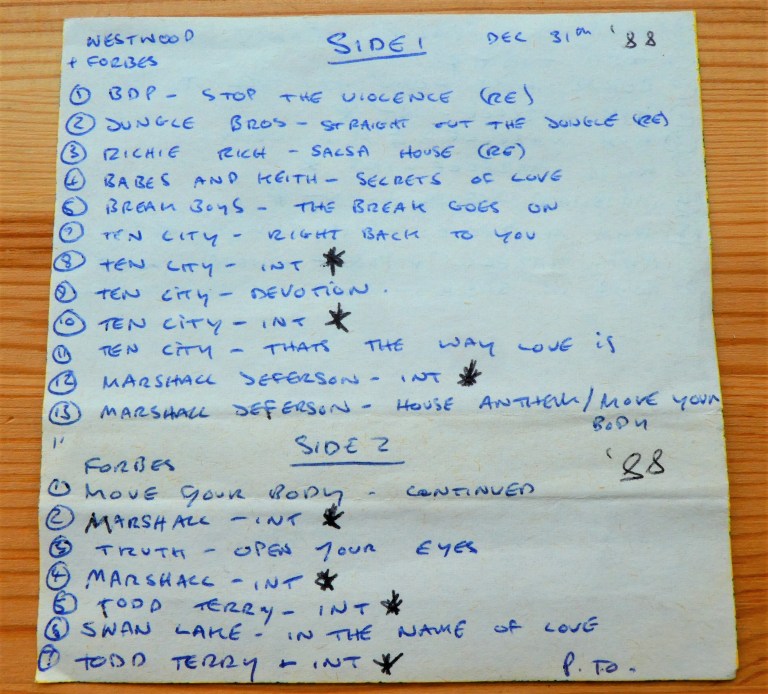 WESTWOOD + FORBES SIDE 1 DEC 31ST '88
① BDP - STOP THE VIOLENCE (RE)
② JUNGLE BROS - STRAIGHT OUT THE JUNGLE (RE)
③ RICHIE RICH - SALSA HOUSE (RE)
④ BABES AND KEITH - SECRETS OF LOVE
⑥ BREAK BOYS - THE BREAK GOES ON
⑦ TEN CITY - RIGHT BACK TO YOU
⑧ TEN CITY - INT *
⑨ TEN CITY - DEVOTION .
⑩ TEN CITY - INT *
⑪ TEN CITY - THATS THE WAY LOVE IS
⑫ MARSHALL DEFERSON - INT *
⑬ MARSHALL DEFERSON - HOUSE ANTHEM / MOVE YOUR BODY
" FORBES SIDE 2 '88
① MOVE YOUR BODY - CONTINUED
② MARSHALL - INT *
③ TRUTH - OPEN YOUR EYES
④ MARSHALL - INT *
⑤ TODD TERRY - INT *
⑥ SWAN LAKE - IN THE NAME OF LOVE
⑦ TODD TERRY - INT * P.TO.